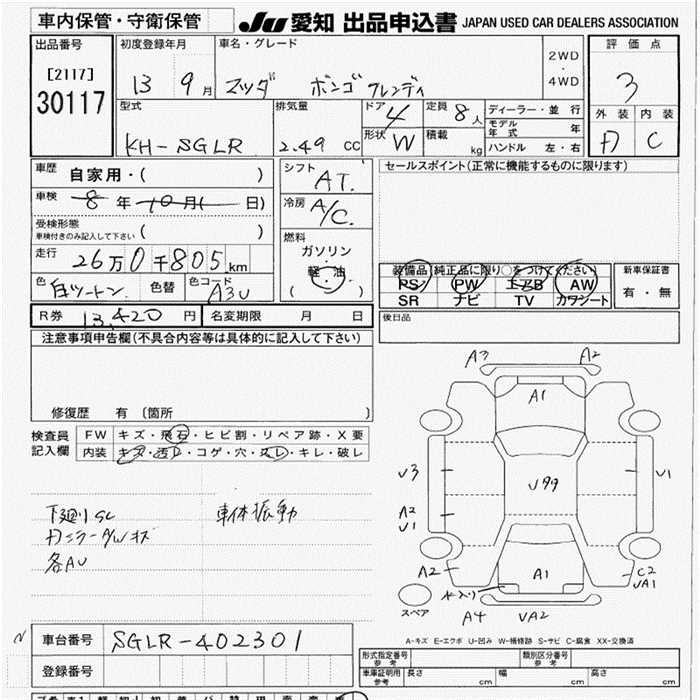 車内保管・守衛保管 JU 愛知 出品申込書 JAPAN USED CAR DEALERS ASSOCIATION
出品番号 初度登録年月 車名・グレード 2WD ・ 4WD 評価点
[2117] 13 9月 マツダ ボンゴ フレンディ 3
30117 型式 排気量 ドア 4 定員 8人 ディーラー・並行 外装 内装
形状 W 積載 kg モデル年式 年 C
KH-SGLR 2.49 CC ハンドル 左・右
車歴 自家用・( ) シフト AT. セールスポイント(正常に機能するものに限ります)
車検 8年 10月( 日) 冷房 A/C.
受検形態 車検付きのみ記入して下さい ( ) 燃料 ガソリン・軽油・( )
走行 26万0千805km 装備品(純正品に限り○をつけてください) 新車保証書
PS PW エアB AW 有・無
色 白ツートン. 色替 色コード A3U SR ナビ TV カワシート
R券 13,420円 名変期限 月 日 後日品
注意事項申告欄(不具合内容等は具体的に記入して下さい)
A3 A2
A1
修復歴 有 〔箇所 〕
検査員記入欄 FW キズ・飛石・ヒビ割・リペア跡・X要
内装 キズ・汚レ・コゲ・穴・スレ・キレ・破レ
U3 U99 U1
下廻りSC 車体振動 A2
U1
各AU
A2 A1 C2
UA1
スペア A4 UA2
車台番号 SGLR-402301 A-キズ E-エクボ U-凹み W-補修跡 S-サビ C-腐食 XX-交換済
型式指定番号 参考 類別区分番号 参考
登録番号 車庫証明用 参考 長さ cm 幅 cm 高さ cm